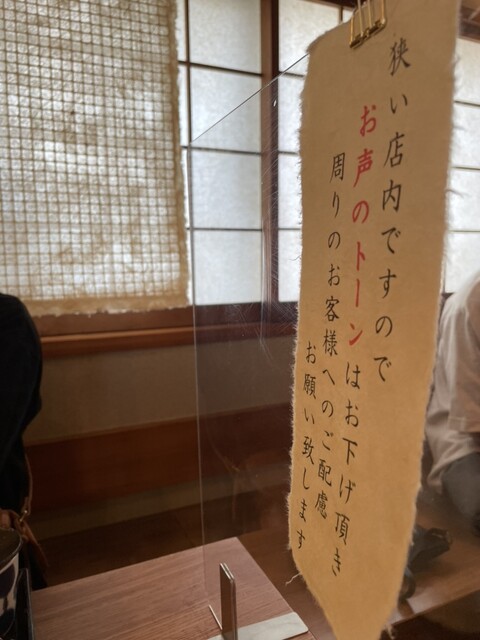 狭い店内ですので
お声のトーンはお下げ頂き
周りのお客様へのご配慮
お願い致します